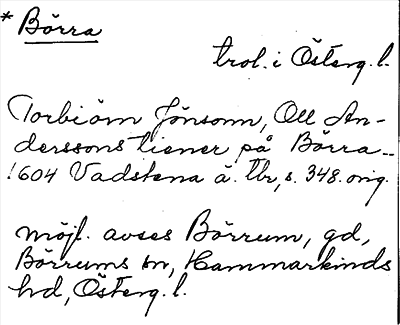 * Börra
trol. i Österg. l.
Torbiöm Jönsonn, Oll An-
derssons tiener på Börra –
1604 Vadstena ä. Tbr, s. 348. orig.
möjl. avses Börrum, gd,
Börrums sn, Hammarkinds
hd, Österg. l.